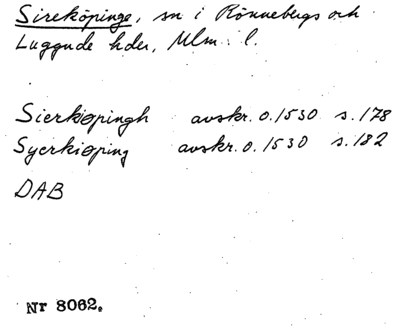 Sireköpinge, sn i Rönnebergs och
Luggude hder, Mlm. l.
Sierkiøpingh avskr. o. 1530 s. 178
Syerkiøping avskr. o. 1530 s. 182
DAB
Nr 8062.